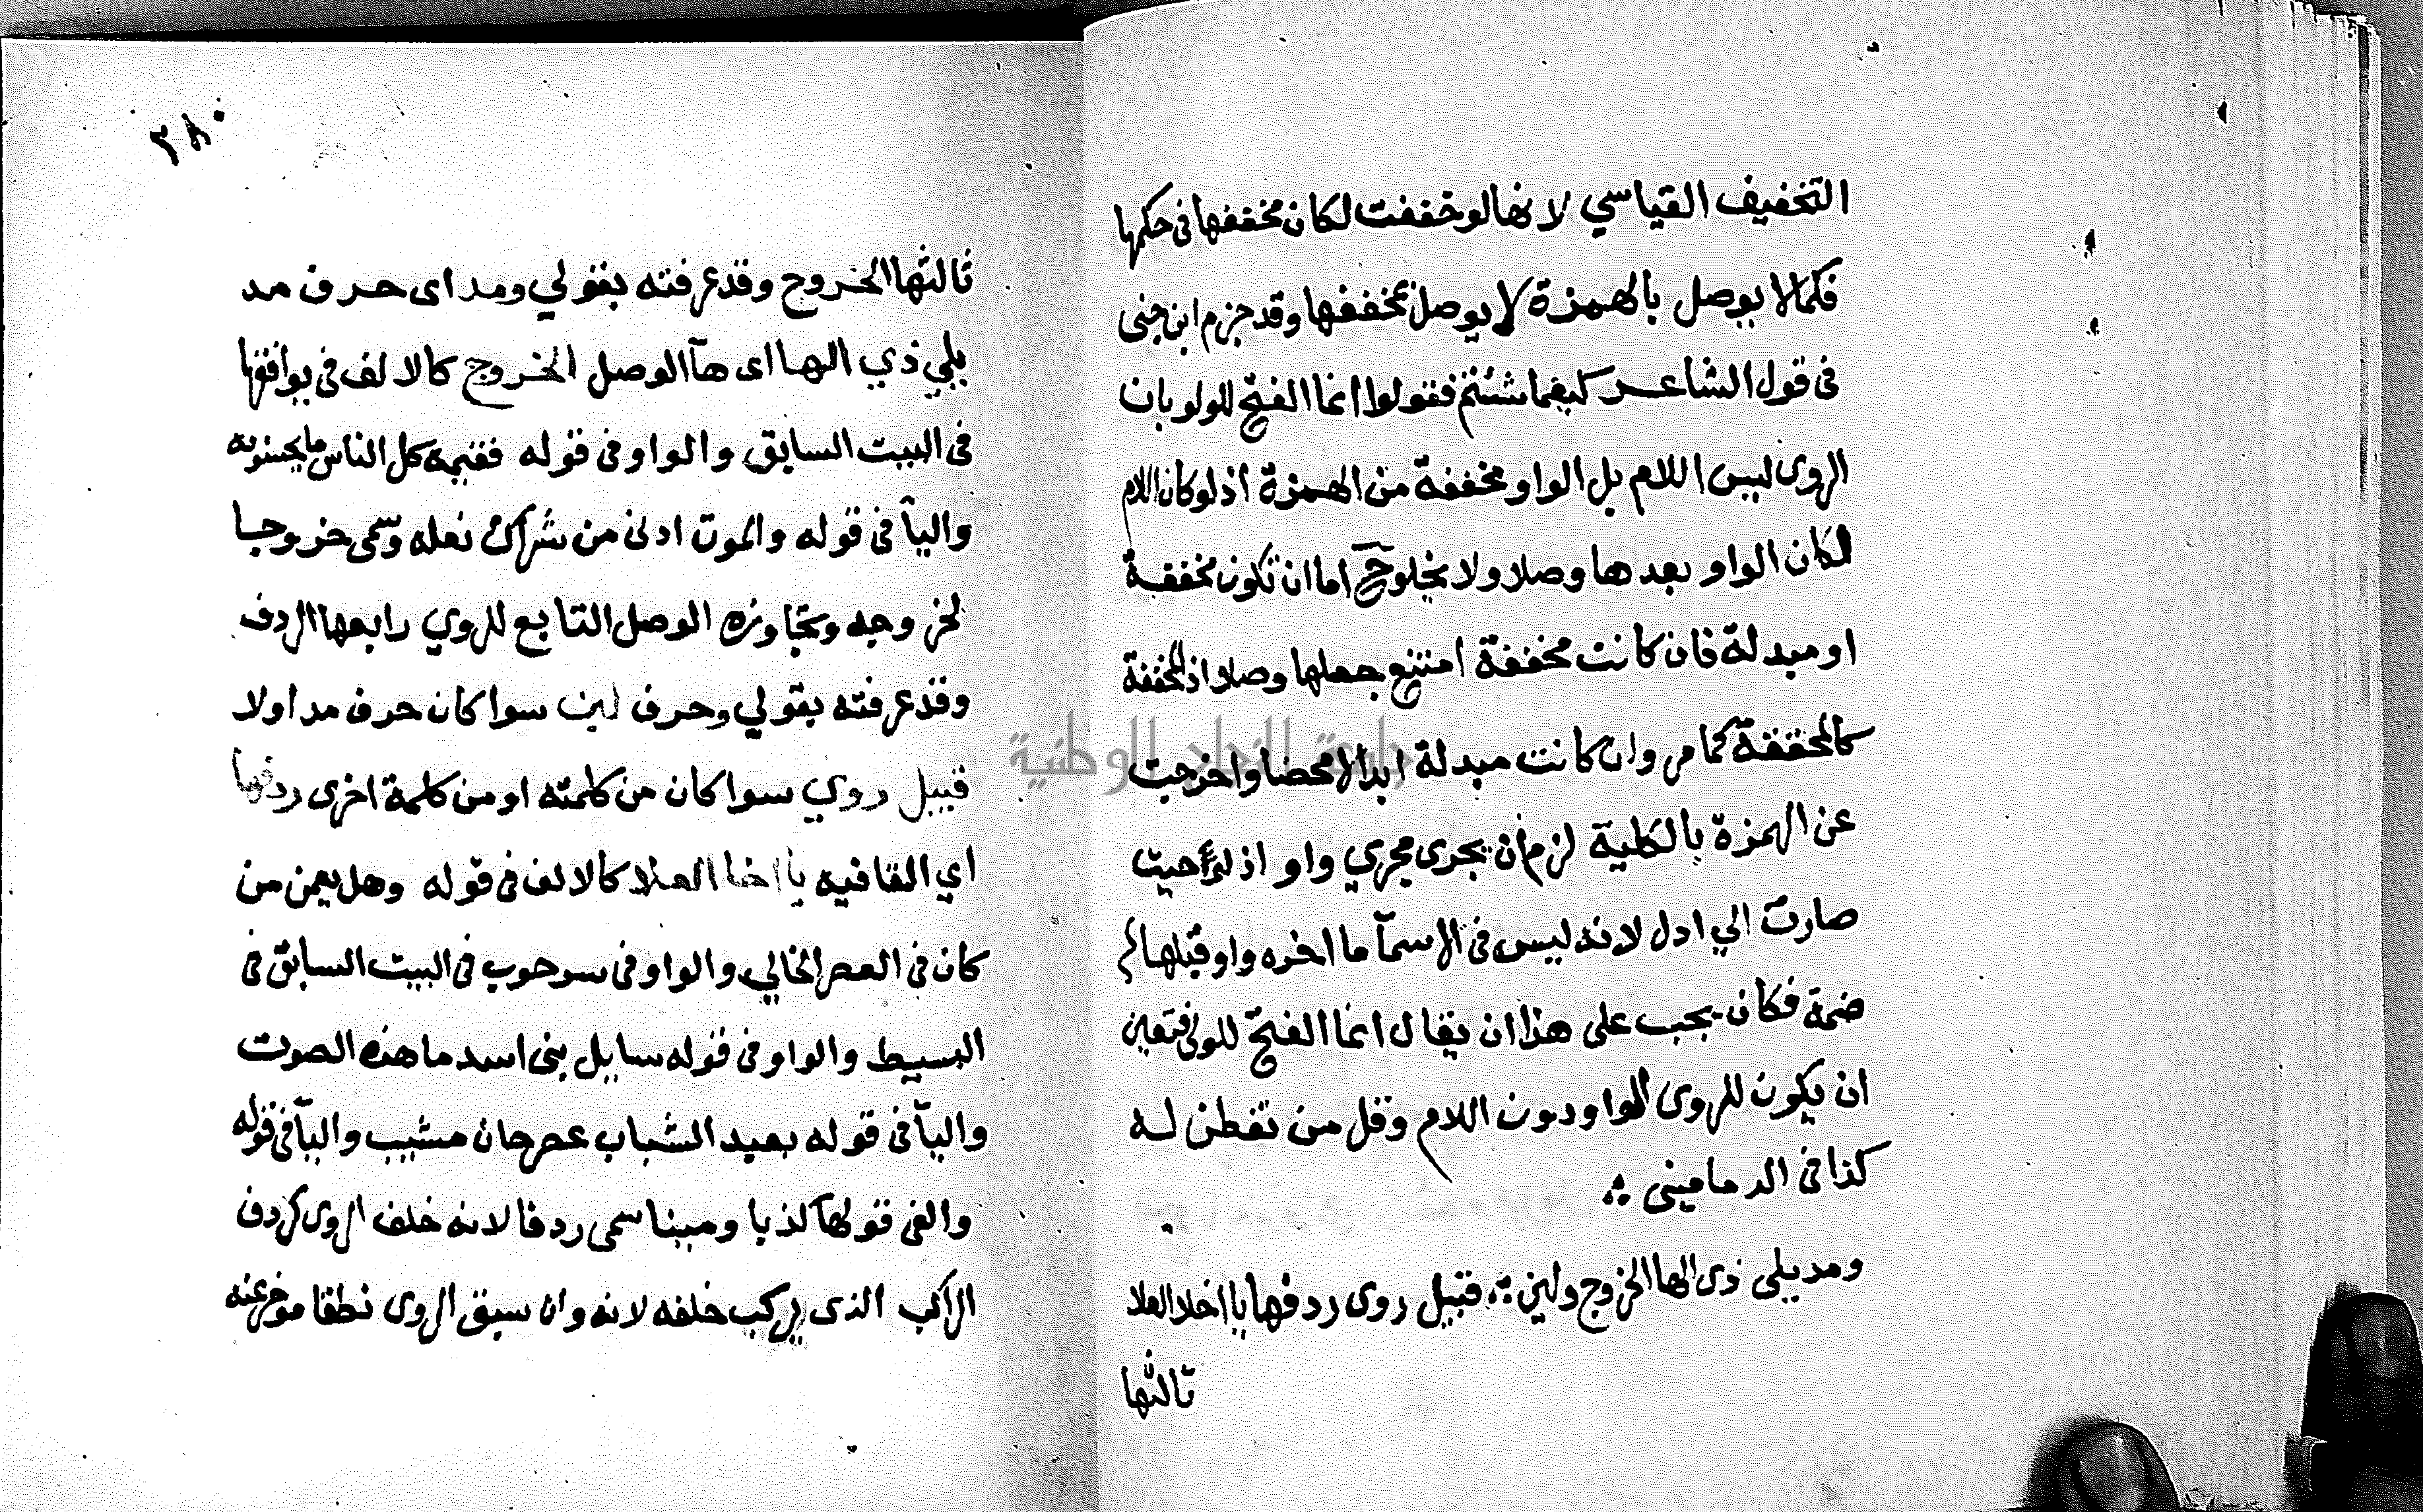 التخفيف القياسي لانها لو خففت لكان مخففها في حكمها
فكما لا يوصل بالهمزة لا يوصل بمخففها وقد جزم ابن جنى
فى قول الشاعر كيفما شئتم فقولوا انما الفتح للولو بان
الروى ليس اللام بل الواو مخففة من الهمزة اذ لو كان اللام
لكان الواو بعدها وصلا ولا يخلو ح اما ان تكون مخففة
او مبدلة فان كانت مخففة امتنع جعلها وصلا اذ المخففة
كالمحققة كما مر وان كانت مبدلة ابدالا محضا واخرجت
عن الهمزة بالكلية لزم ان يجرى مجري واو اذ لو احيت
صارت الي ادل لانه ليس فى الاسمآ ما اخره واو قبلها
ضمة فكان يجب على هذا ان يقال انما الفتح للولى فتعين
ان يكون للروى الواو دون اللام وقل من تفطن له
كذا فى الدمامينى
ومد يلى ذى الها الخروج ولين قبيل روى ردفها يا اخا العلا
ثالثها
٣٨
ثالثها الخروج وقد عرفته بقولي ومد اى حرف مد
يلي ذي الها اى هآ الوصل الخروج كالالف فى يوافقها
فى البيت السابق والواو فى قوله فقيمة كل الناس ما يحسنونه
واليآ فى قوله والموت ادنى من شراك نعله وسمى خروجا
لخروجه وتجاوزه الوصل التابع للروي رابعها الردف
وقد عرفته بقولي وحرف لين سوا كان حرف مد اولا
قبيل روي سوا كان من كلمته او من كلمة اخرى ردفها
اي القافيه يا اخا العلا كالالف فى قوله وهل يعمن من
كان فى العصر الخالي والواو فى سرحوب فى البيت السابق فى
البسيط والواو فى قوله سايل بنى اسد ما هذه الصوت
واليآ فى قوله بعيد الشباب عصر حان مشيب واليآ فى قوله
والفى قولها كذبا ومينا سمى ردفا لانه خلف الروى كردف
الراكب الذى يركب خلفه لانه وان سبق الروى نطقا موخر عنه
جامعة النجاح الوطنية